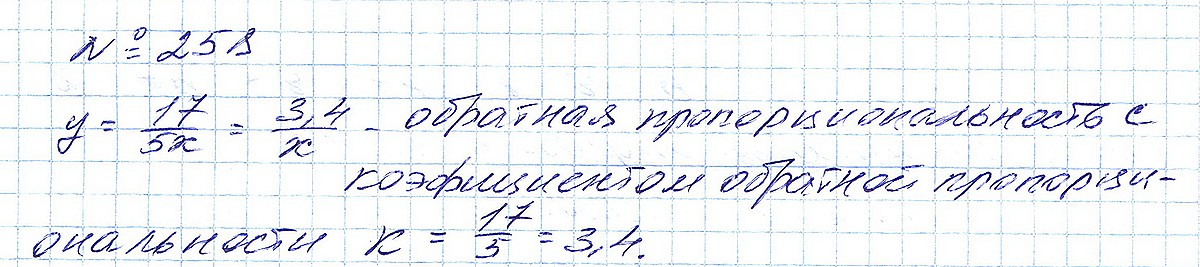 № 25в
y = 17/5x = 3,4/x - обратная пропорциональность с
коэфициентом обратной пропорци-
ональности к = 17/5 = 3,4.